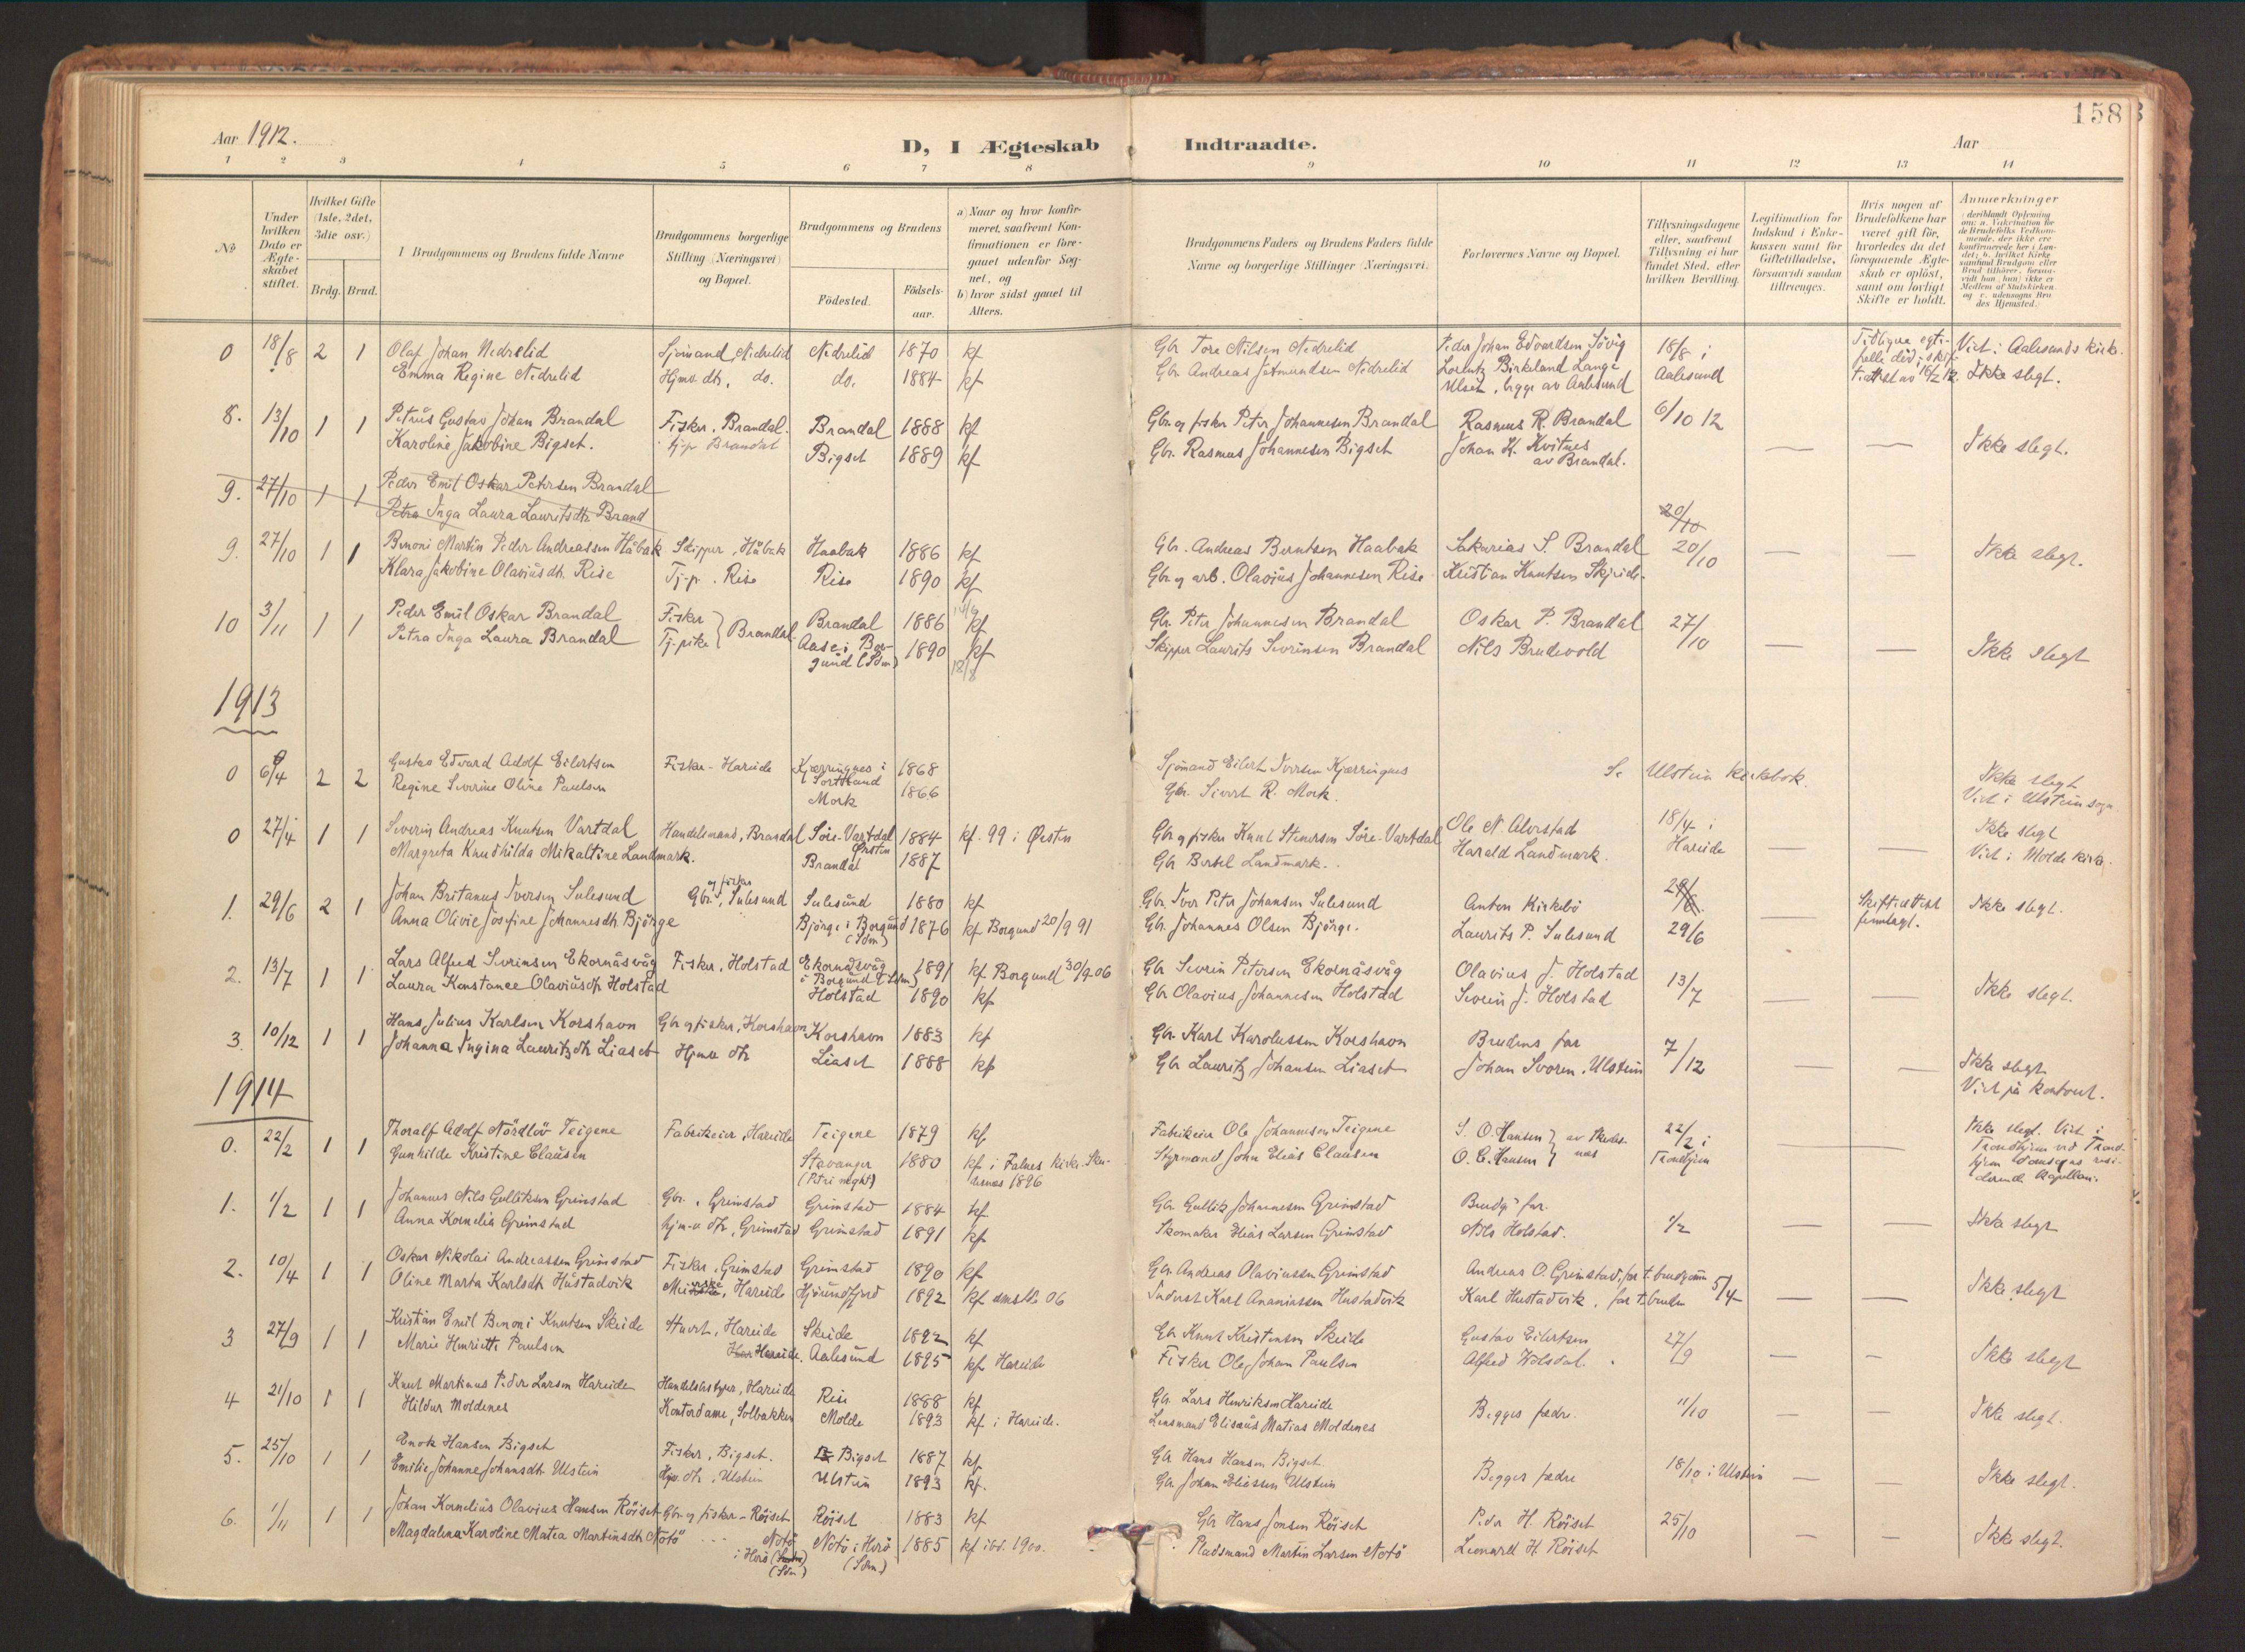 158
Aar 1912.
D, I Ægteskab Indtraadte.
Aar
1 2 3 4 5 6 7 8 9 10 11 12 13 14
No
Under hvilken Dato er Ægteskabet stiftet.
Hvilket Gifte (1ste, 2det, 3die osv.)
Brdg. Brud.
Brudgommens og Brudens fulde Navne
Brudgommens borgerlige Stilling (Næringsvei) og Bopæl.
Brudgommens og Brudens
Fødested.
Fødselsaar.
a) Naar og hvor konfirmeret, saafremt Konfirmationen er foregaaet udenfor Sognet, og
b) hvor sidst gaaet til Alters.
Brudgommens Faders og Brudens Faders fulde Navne og borgerlige Stillinger (Næringsvei).
Forlovernes Navne og Bopæl.
Tillysningsdagene eller, saafremt Tillysning ei har fundet Sted, efter hvilken Bevilling.
Legitimation for Indskud i Enkekassen samt for Giftetilladelse, forsaavidt saadan tiltrænges.
Hvis nogen af Brudefolkene har været gift før, hvorledes da det foregaaende Ægteskab er opløst, samt om lovligt Skifte er holdt.
Anmærkninger
0 18/8 2 1 Olaf Johan Nedrelid Sjømand, Nedrelid Nedrelid 1870 kf Gbr Tore Nilsen Nedrelid Peder Johan Edvardsen Søvig 18/8 i Viet i Aalesunds kirke.
Emma Regine Nedrelid Hjmv. dt, do. do. 1884 kf Gbr Andreas Nedrelid Birkeland Lange Aalesund Ikke slegt.
begge av Aalesund
8. 13/10 1 1 Petrus Gustav Johan Brandal Fisker, Brandal. Brandal 1888 kf Gbr. og fisker Peter Johannesen Brandal Rasmus R. Brandal 6/10 12
Karoline Jakobine Bigset. tj.p Brandal Bigset 1889 kf Gbr. Rasmus Johannesen Bigset Johan K. Kvitnes av Brandal. — — Ikke slegt.
9. 27/10 1 1 Peder Emil Oskar Petersen Brandal
Petra Inga Laura Lauritsdtr Brand 20/10
9. 27/10 1 1 Benoni Martin Peder Andreassen Håbak Skipper, Håbak Haabak 1886 kf Gbr. Andreas Berntsen Haabak Sakarias S. Brandal 20/10 — — Ikke slegt.
Klara Jakobine Olaviusdtr. Rise Tj.p. Rise Rise 1890 kf Gbr. og arb. Olavius Johannesen Rise Kristian Knutsen Skjeide.
10 3/11 1 1 Peder Emil Oskar Brandal Fisker } Brandal. Brandal 1886 kf Gbr. Peter Johannesen Brandal Oskar P. Brandal 27/10
Petra Inga Laura Brandal Tj.pike Aase i Borgund (Sdm) 1890 kf 12/8 Skipper Laurits Severinsen Brandal Nils Brudevold — — Ikke slegt
1913
0 6/4 2 2 Gustav Edvard Adolf Eilertsen Fisker - Hareide Kjærringnes i Sortland 1868 Sjømand Eilert Iversen Kjærringnes Se Ulstein kirkebok. Ikke slegt
Regine Severine Oline Paulsen Mork 1866 Gbr. Sivert R. Mork. Viet i Ulstein sogn
0 27/4 1 1 Severin Andreas Knutsen Vartdal Handelsmand, Brandal Søre-Vartdal Ørsten 1884 kf. 99 i Ørsten Gbr og fisker Knut Stenersen Søre-Vartdal Ole N. Alvestad 18/4 i Hareide Ikke slegt
Margreta Knudhilda Mikaltine Landmark. Brandal 1887 Gbr Bertel Landmark. Harald Landmark. — — Viet i Molde kirke.
1. 29/6 2 1 Johan Britanus Iversen Sulesund Gbr. og fisker, Sulesund Sulesund 1880 kf Gbr. Iver Peter Johansen Sulesund Anton Kirkebø 29/6. Ikke slegt.
Anna Olivie Josefine Johannesdtr Bjørge Bjørge i Borgund (Sdm) 1876 kf Borgund 20/9 91 Gbr. Johannes Olsen Bjørge. Laurits P. Sulesund 29/6 —
2. 13/7 1 1 Lars Alfred Severinsen Ekornåsvåg Fisker, Holstad Ekornåsvåg i Borgund (Sdm) 1891 kf Borgund 30/9 06 Gbr Severin Petersen Ekornåsvåg Olavius J. Holstad 13/7 — — Ikke slegt.
Laura Konstance Olaviusdtr Holstad Holstad 1890 kf Gbr Olavius Johannesen Holstad Severin J. Holstad
3. 10/12 1 1 Hans Julius Karlsen Korshavn Gbr og fisker, Korshavn Korshavn 1883 kf Gbr. Karl Karolussen Korshavn Brudens far 7/12
Johanna Ingina Lauritzdtr Liaset Hjmv dtr Liaset 1888 kf Gbr Lauritz Johansen Liaset Johan Svoren, Ulstein — — Ikke slegt
Viet på kontoret.
1914
0. 22/2 1 1 Thoralf Adolf Nördlöv Teigene Fabrikeier, Hareide Teigene 1879 kf Fabrikeier Ole Johannesen Teigene S. O. Hansen } av 22/2 i Trondhjem Ikke slegt. Viet i
Gunhilde Kristine Clausen Stavanger (Petri meght) 1880 kf i Falnes kirke Skudesnes 1896 Styrmand John Elias Clausen O. C. Hansen
1. 1/2 1 1 Johannes Nils Gulliksen Grimstad Gbr., Grimstad Grimstad 1884 kf Gbr Gullik Johannesen Grimstad Brudg.s far.
Anna Kornelia Grimstad hjm.v dtr, Grimstad Grimstad 1891 kf Skomaker Elias Larsen Grimstad Nils Holstad. 1/2 — — Ikke slegt
2. 10/4 1 1 Oskar Nikolai Andreassen Grimstad Fisker, Grimstad Grimstad 1890 kf Gbr. Andreas Olaviussen Grimstad Andreas O. Grimstad, far t. brudgom 5/4 — — Ikke slegt
Oline Marta Karlsdtr Hustadvik Hareide Hjørundfjord 1892 kf smstds 06 Karl Ananiassen Hustadvik Karl Hustadvik, far t. bruden
3 27/9 1 1 Kristian Emil Benoni Knutsen Skeide Stuert, Hareide Skeide 1892 kf Gbr Knut Kristensen Skeide Gustav Eilertsen 27/9
Marie Henriette Paulsen Hareide. Aalesund 1895 kf Hareide Fisker Ole Johan Paulsen Alfred Wolsdal. — — Ikke slegt
4 21/10 1 1 Knut Martinus Peder Larsen Hareide Handelsbestyrer, Hareide Reie 1888 kf Gbr. Lars Henriksen Hareide Begges fædre. 11/10 — — Ikke slegt.
Hildur Moldenes Kontordame, Solbakken Molde 1893 kf. i Hareide. Lensmand Elisæus Matias Moldenes
5. 25/10 1 1 Enok Hansen Bigset Fisker, Bigset. Bigset 1887 kf Gbr Hans Hansen Bigset. Begges fædre 18/10 i Ulstein — — Ikke slegt.
Emilie Johanne Johansdtr Ulstein Hjv. dtr, Ulstein Ulstein 1893 kf. Gbr. Johan Eliassen Ulstein
6. 1/11 1 1 Johan Kornelius Olavius Hansen Røiset Gbr og fisker - Røiset Røiset 1883 kf Gbr Hans Jonsen Røiset Peder H. Røiset 25/10
Magdalena Karoline Matea Martinsdtr Notö Notö i Herö (Sdm) Notö i Herö (Sdm) 1885 kf ibd. 1900. Pladsmand Martin Larsen Notö Leonard H. Røiset — — Ikke slegt.